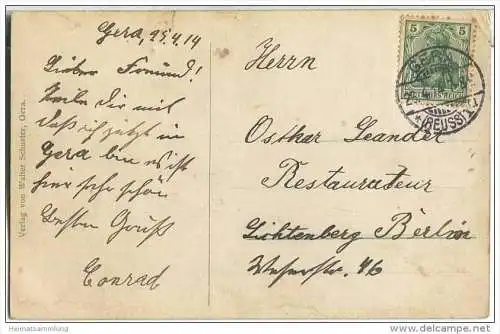 Gera, 25.4.14
Lieber Freund!
Teile Dir mit
daß ich jetzt in
Gera bin es ist
hier sehr schön
Besten Gruß
Conrad
Herrn
Osthar Leander
Restaurateur
Lichtenberg Berlin
Weserstr. 46
Verlag von Walter Schuster, Gera.
5
5
(REUSS)
heimatsammlung.de
delcampe.net